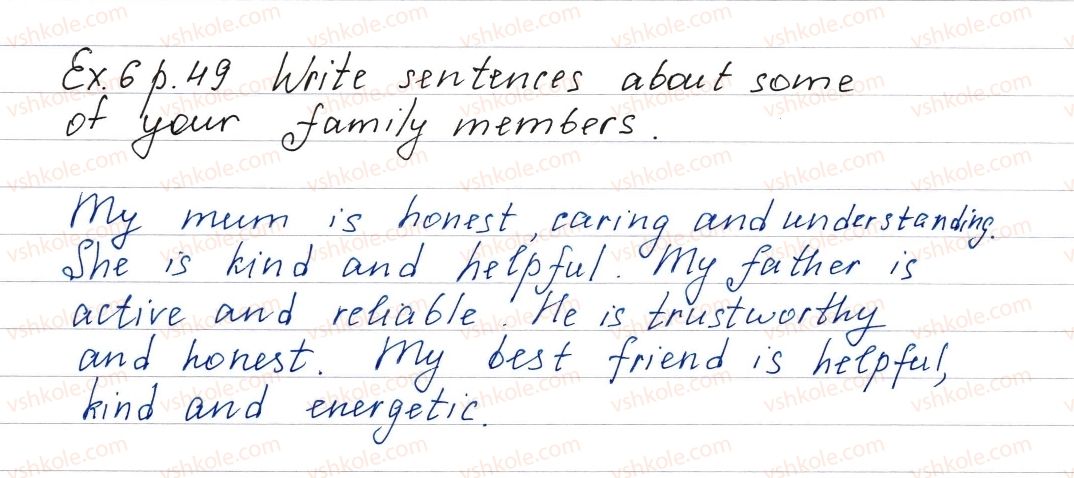 Ex. 6 p. 49 Write sentences about some
of your family members.
My mum is honest, caring and understanding.
She is kind and helpful. My father is
active and reliable. He is trustworthy
and honest. My best friend is helpful,
kind and energetic.